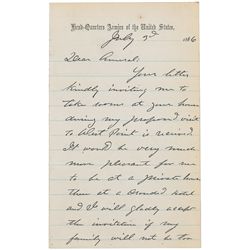 Head-Quarters Armies of the United States.
July 3d 1866
Dear General:
Your letter
kindly inviting me to
take rooms at your house
during my proposed visit
to West Point is received.
It would be very much
more pleasant for me
to be at a private house
than at a crowded hotel
and I will gladly accept
the invitation if my
family will not be too